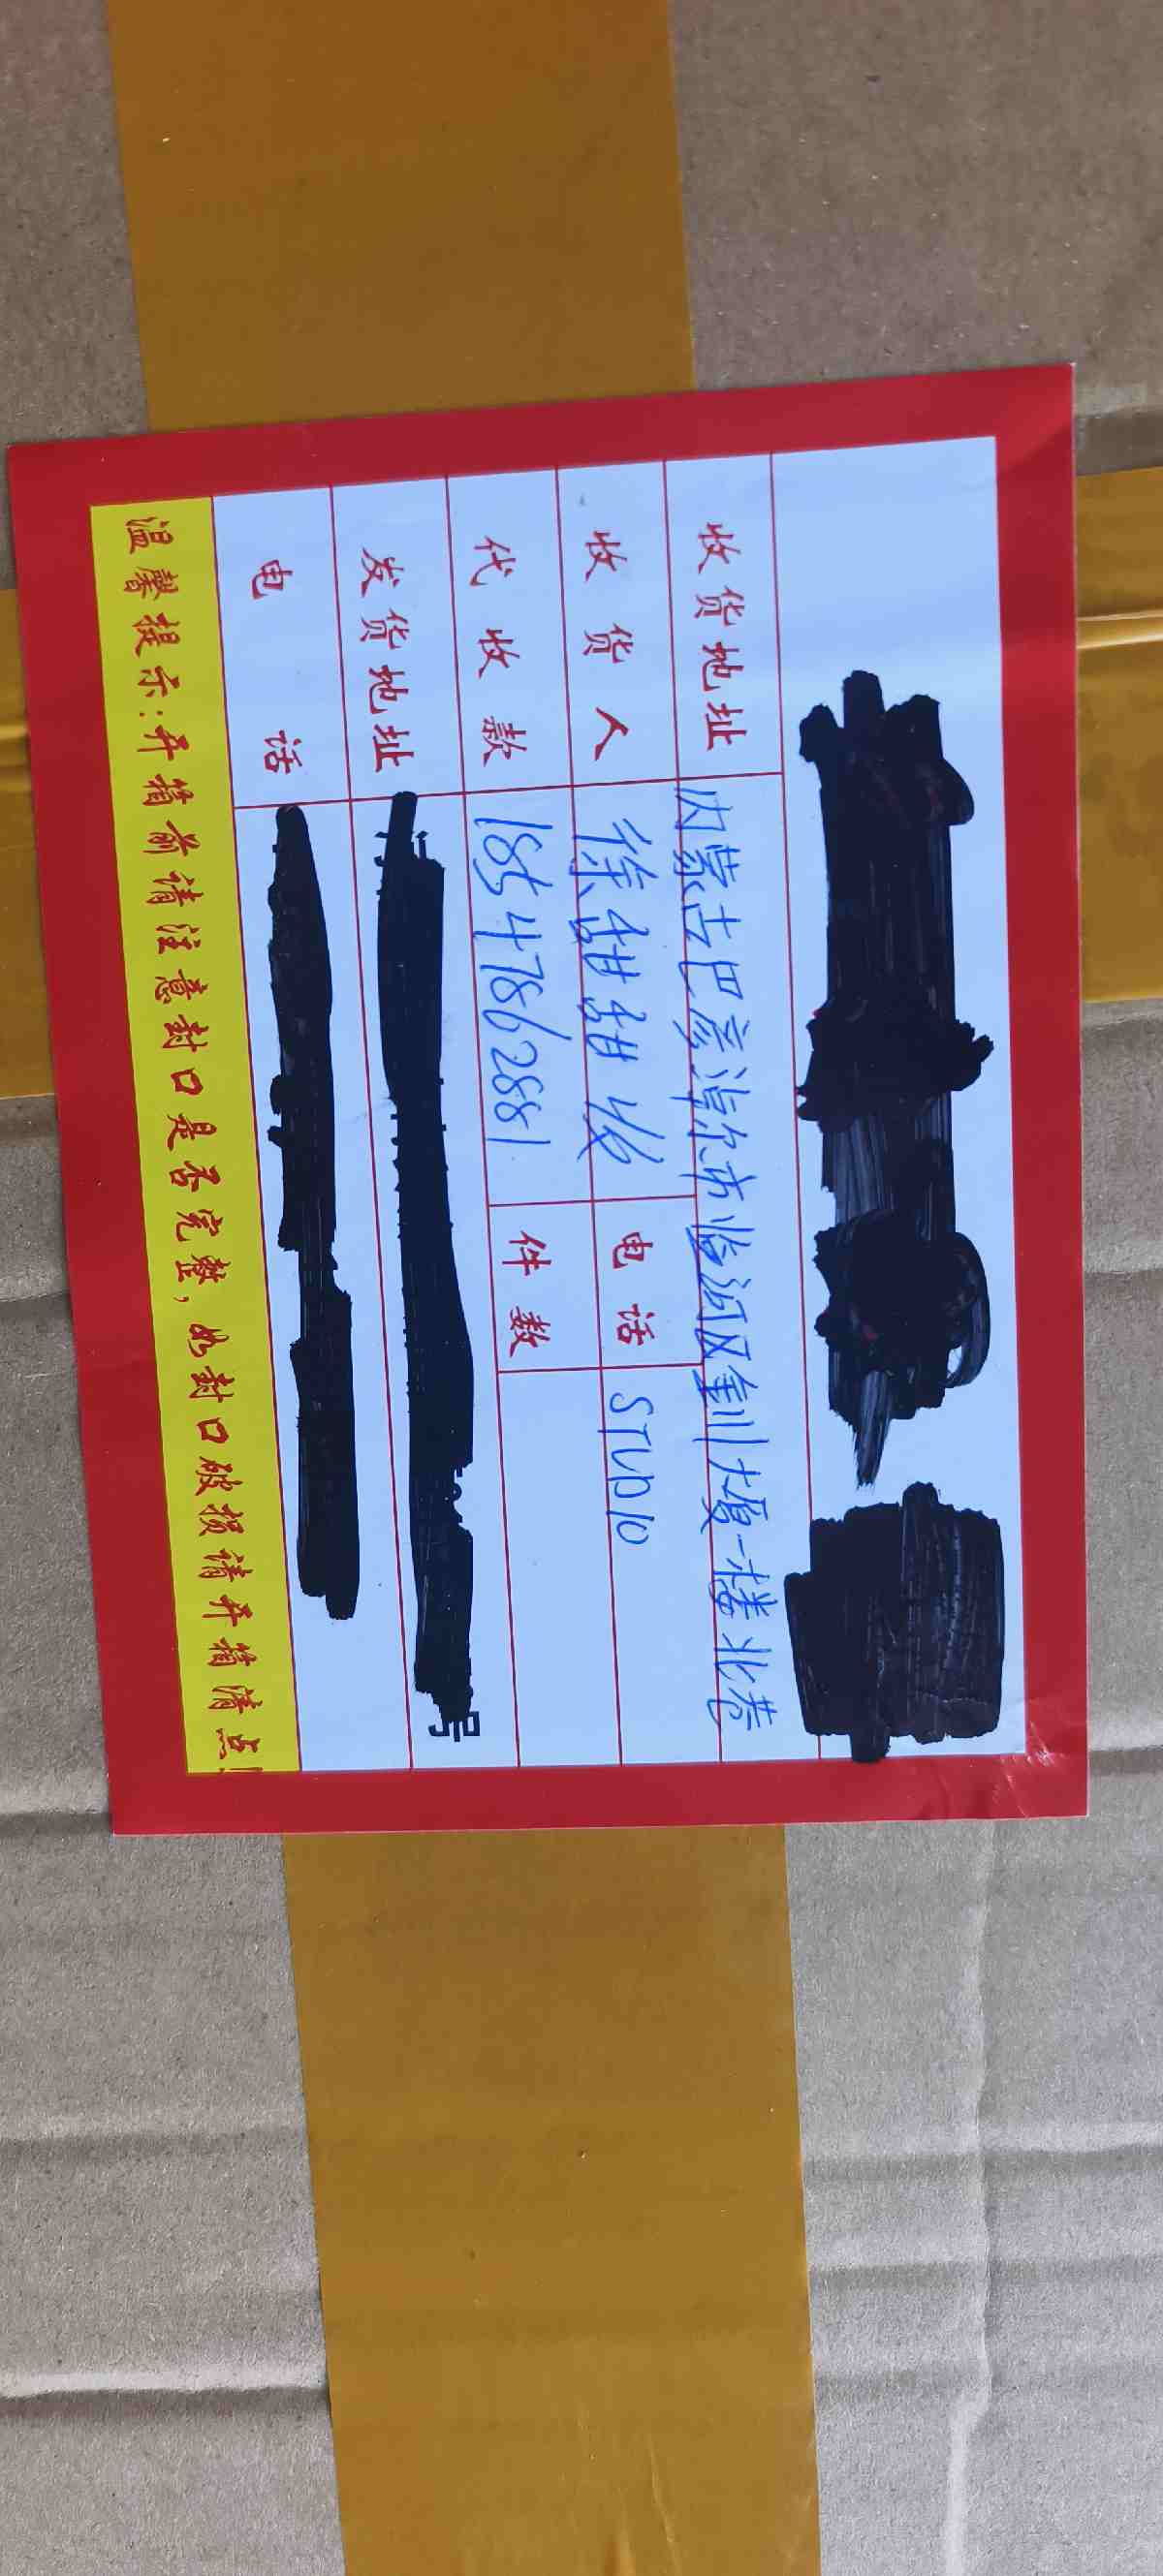 收货地址 内蒙古巴彦淖尔市临河区金川大厦一楼北巷
收货人 徐甜甜 收 电话 STUD10
代收款 18547862881 件数
发货地址 号
电话
温馨提示:开箱前请注意封口是否完整,如封口破损请开箱清点!